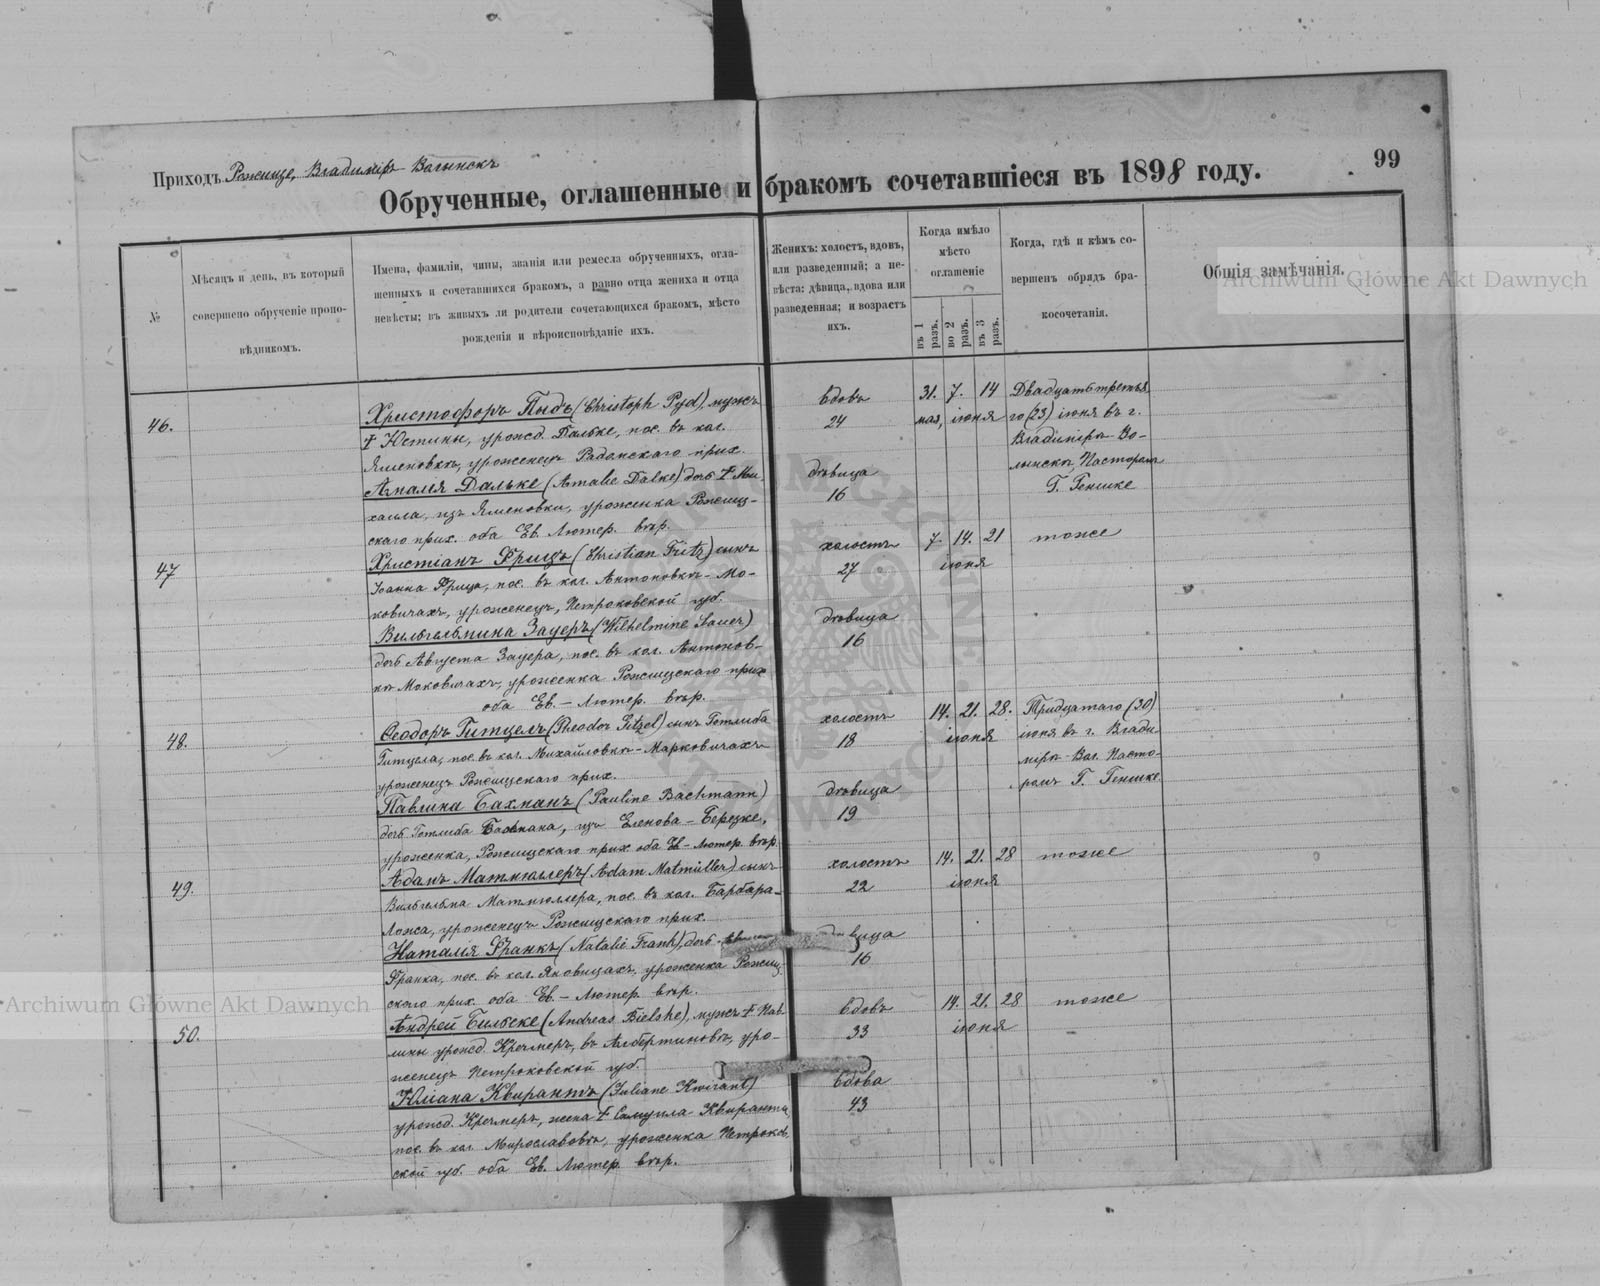 Приходъ Рожище, Владимiръ Волынскъ
99
Обрученные, оглашенные и бракомъ сочетавшіеся въ 1898 году.
№
Мѣсяцъ и день, въ который
совершено обрученіе пропо-
вѣдникомъ.
Имена, фамиліи, чины, званія или ремесла обрученныхъ, огла-
шенныхъ и сочетавшихся бракомъ, а равно отца жениха и отца
невѣсты; въ живыхъ ли родители сочетающихся бракомъ, мѣсто
рожденія и вѣроисповѣданіе ихъ.
Женихъ: холостъ, вдовъ,
или разведенный; а не-
вѣста: дѣвица, вдова или
разведенная; и возрастъ
ихъ.
Когда имѣло
мѣсто
оглашеніе
въ 1 разъ.
во 2 разъ.
въ 3 разъ.
Когда, гдѣ и кѣмъ со-
вершенъ обрядъ бра-
косочетанія.
Общія замѣчанія.
Archiwum Główne Akt Dawnych
46.
Христофоръ Пыдъ (Christoph Pyd), мужъ
† Юстины, урожд. Дальке, пос. въ кол.
Яменовкѣ, уроженецъ Радомскаго прих.
Амалія Дальке (Amalie Dalke) дочь † Ми
хаила, изъ Яменовки, уроженка Рожищ-
скаго прих. оба Ев. Лютер. вѣр.
вдовъ
24
дѣвица
16
31. 7. 14
мая, іюня
Двадцать третья
го (23) іюня въ г.
Владиміръ-Во-
лынскъ, Пасторомъ
Г. Геншке
47
Христіанъ Фрицъ (Christian Fritz) сынъ
Іоанна Фрица, пос. въ кол. Антоновкѣ-Мо-
ковичахъ, уроженецъ, Петроковской губ.
Вильгельмина Зауеръ (Wilhelmine Sauer)
дочь Августа Зауера, пос. въ кол. Антонов-
кѣ Моковичахъ, уроженка Рожищскаго прих
оба Ев. – Лютер. вѣр.
холостъ
27
дѣвица
16
7. 14. 21
іюня
тоже
48.
Ѳеодоръ Гитцелъ (Theodor Gitzel) сынъ Готлиба
Гитцела, пос. въ кол. Михайловкѣ-Марковичахъ
уроженецъ Рожищскаго прих.
Павлина Бахманъ (Pauline Bachmann)
дочь Готлиба Бахмана, изъ Еленова-Березке,
уроженка, Рожищскаго прих оба Ев-Лютер. вѣр.
холостъ
18
дѣвица
19
14. 21. 28.
іюня
Тридцатаго (30)
іюня въ г. Влади
міръ-Вол. Пасто-
ромъ Г. Геншке
49.
Адамъ Матмюллеръ (Adam Matmüller) сынъ
Вильгельма Матмюллера, пос. въ кол. Барбара-
Ложа, уроженецъ Рожищскаго прих.
Наталія Франкъ (Natalie Frank), дочь
Франка, пос. въ кол. Яновицахъ, уроженка Рожищ-
скаго прих. оба Ев. – Лютер. вѣр.
холостъ
22
дѣвица
16
14. 21. 28
іюня
тоже
Archiwum Główne Akt Dawnych
50.
Андрей Бильске (Andreas Bielske), мужъ † Пав
лины урожд. Кречмеръ, въ Албертиновкѣ, уро-
женецъ Петроковской губ.
Юліана Квирантъ (Juliane Kwirant)
урожд. Кречмеръ, жена † Самуила Квиранта
пос. въ кол. Мирославовкѣ, уроженка Петроков
ской губ. оба Ев. Лютер. вѣр.
вдовъ
33
вдова
43
14. 21. 28
іюня
тоже